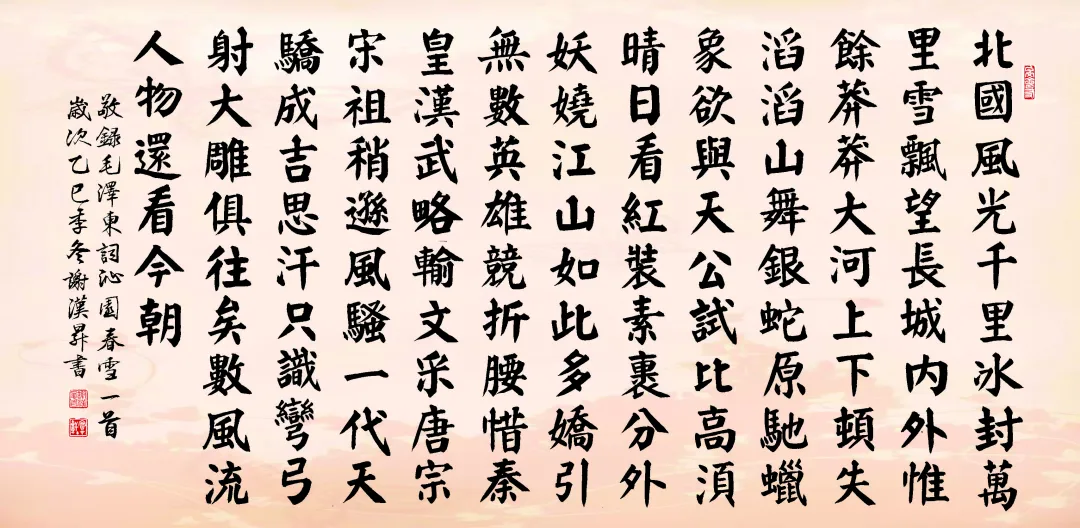 北國風光千里冰封萬
里雪飄望長城內外惟
餘莽莽大河上下頓失
滔滔山舞銀蛇原馳蠟
象欲與天公試比高湏
晴日看紅裝素裹分外
妖嬈江山如此多嬌引
無數英雄競折腰惜秦
皇漢武略輸文采唐宗
宋祖稍遜風騷一代天
驕成吉思汗只識彎弓
射大雕俱往矣數風流
人物還看今朝
敬錄毛澤東詞沁園春雪一首
歲次乙巳季冬謝漢昇書